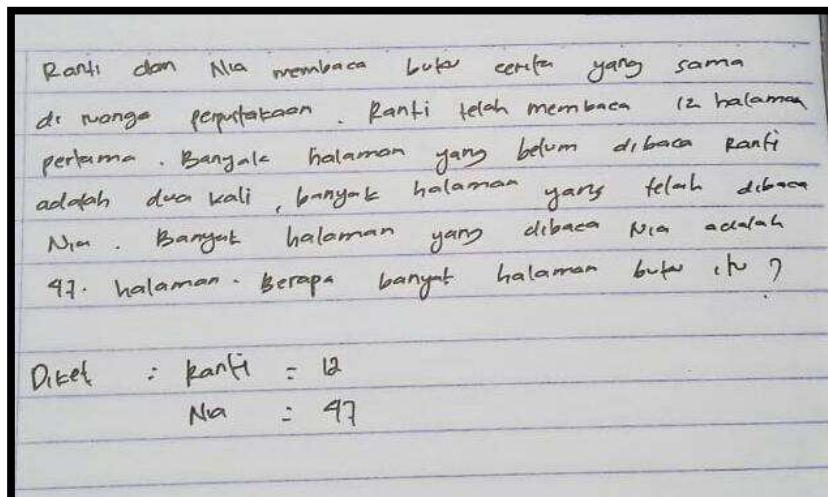 Ranti dan Nia membaca buku cerita yang sama
di ruanga perpustakaan. Ranti telah membaca 12 halaman
pertama. Banyak halaman yang belum dibaca Ranti
adalah dua kali, banyak halaman yang telah dibaca
Nia. Banyak halaman yang dibaca Nia adalah
47. halaman. Berapa banyak halaman buku itu?
Diket : Ranti = 12
Nia = 47